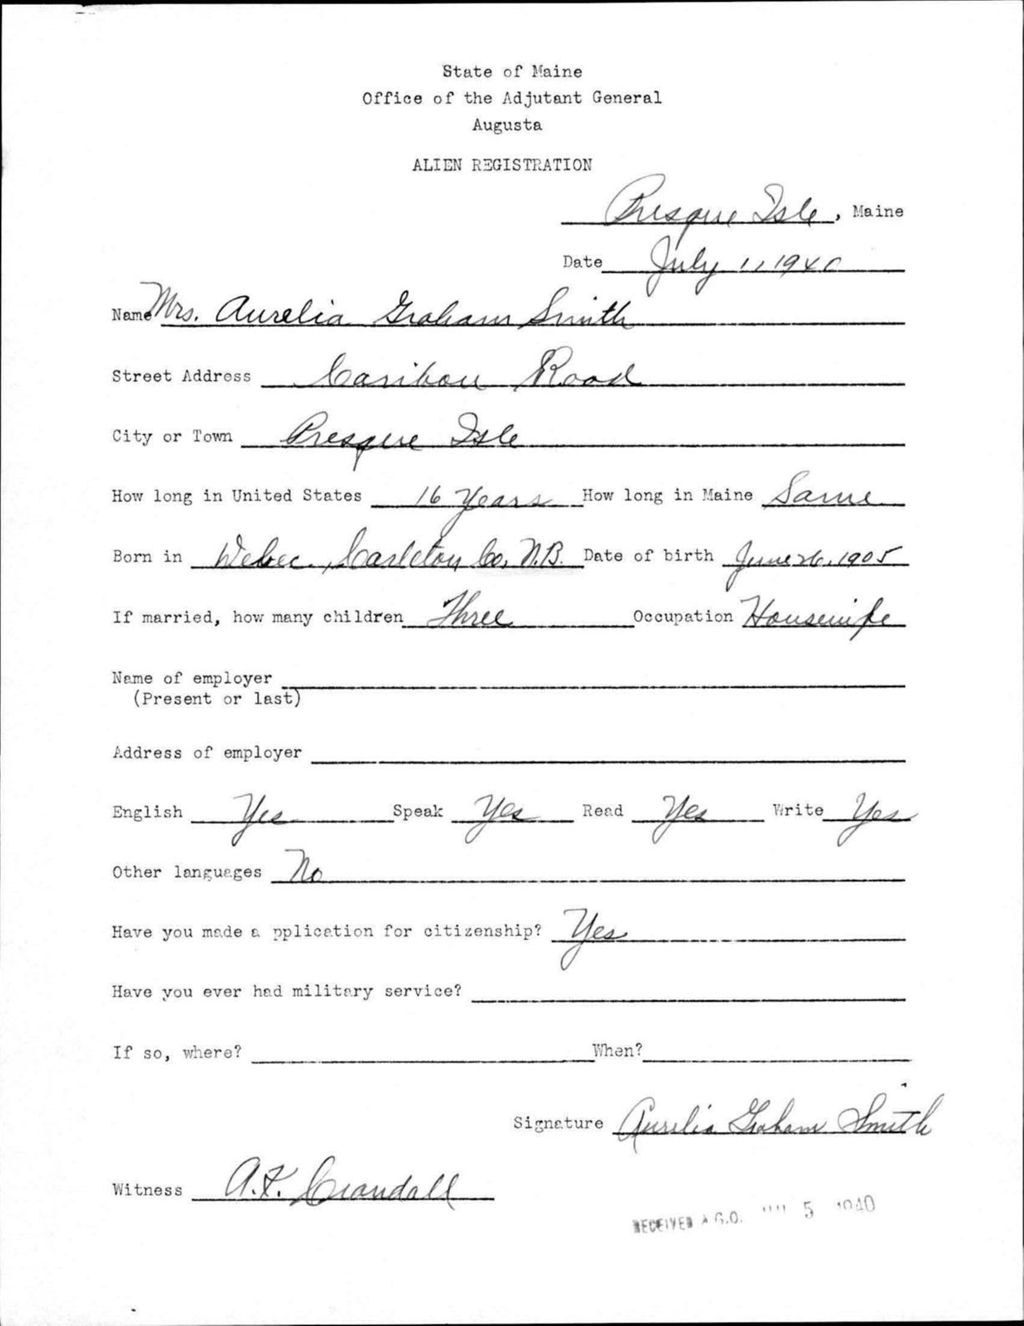 State of Maine
Office of the Adjutant General
Augusta
ALIEN REGISTRATION
Presque Isle, Maine
Date July 1, 1940
Name Mrs. Aurelia Graham Smith
Street Address Caribou Road
City or Town Presque Isle
How long in United States 16 Years How long in Maine Same
Born in Carleton Co, N.B. Date of birth June 26, 1905
If married, how many children Three Occupation Housewife
Name of employer
(Present or last)
Address of employer
English Yes Speak Yes Read Yes Write Yes
Other languages No
Have you made a pplication for citizenship? Yes
Have you ever had military service?
If so, where? When?
Signature Aurelia Graham Smith
Witness A.F. Crandall
RECEIVED A.G.O. 5 1940